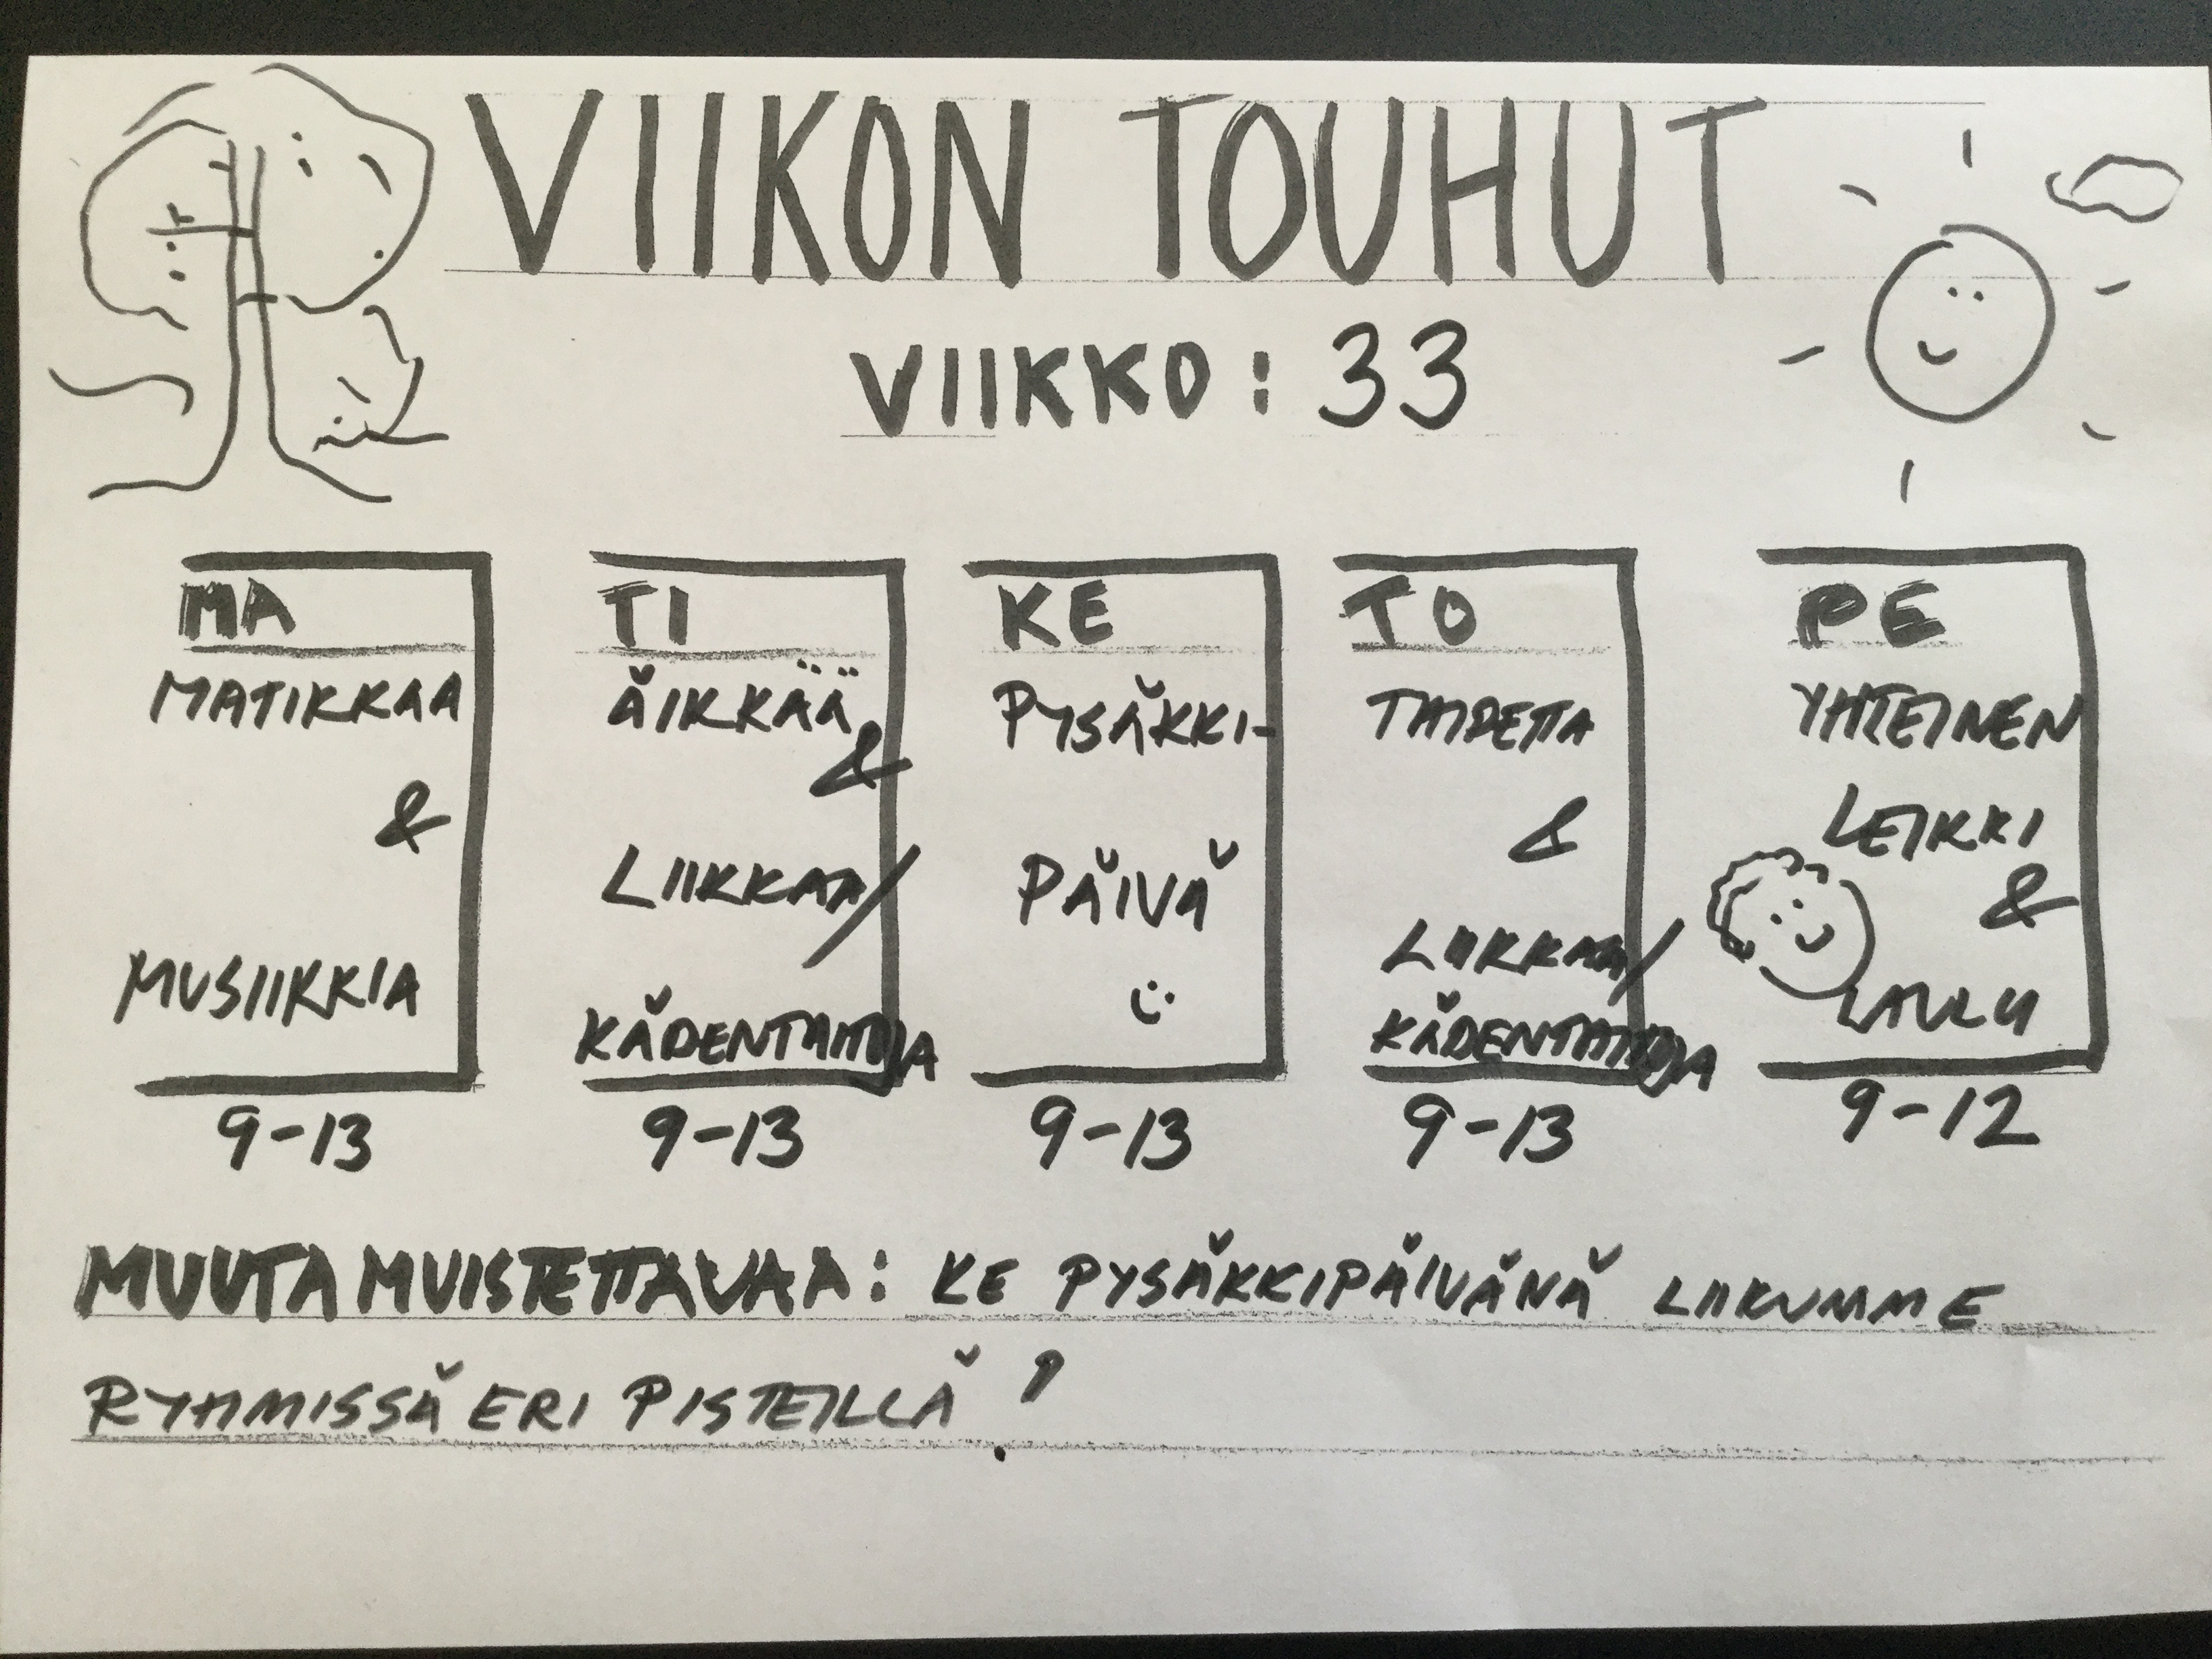 VIIKON TOUHUT
VIIKKO: 33
MA
MATIKKAA
&
MUSIIKKIA
9-13
TI
ÄIKKÄÄ
&
LIIKKAA/
KÄDENTAITOJA
9-13
KE
PYSÄKKI-
PÄIVÄ
9-13
TO
TAIDETTA
&
LIIKKAA/
KÄDENTAITOJA
9-13
PE
YHTEINEN
LEIKKI
&
LAULU
9-12
MUUTA MUISTETTAVAA: KE PYSÄKKIPÄIVÄNÄ LIIKUMME
RYHMISSÄ ERI PISTEILLÄ!